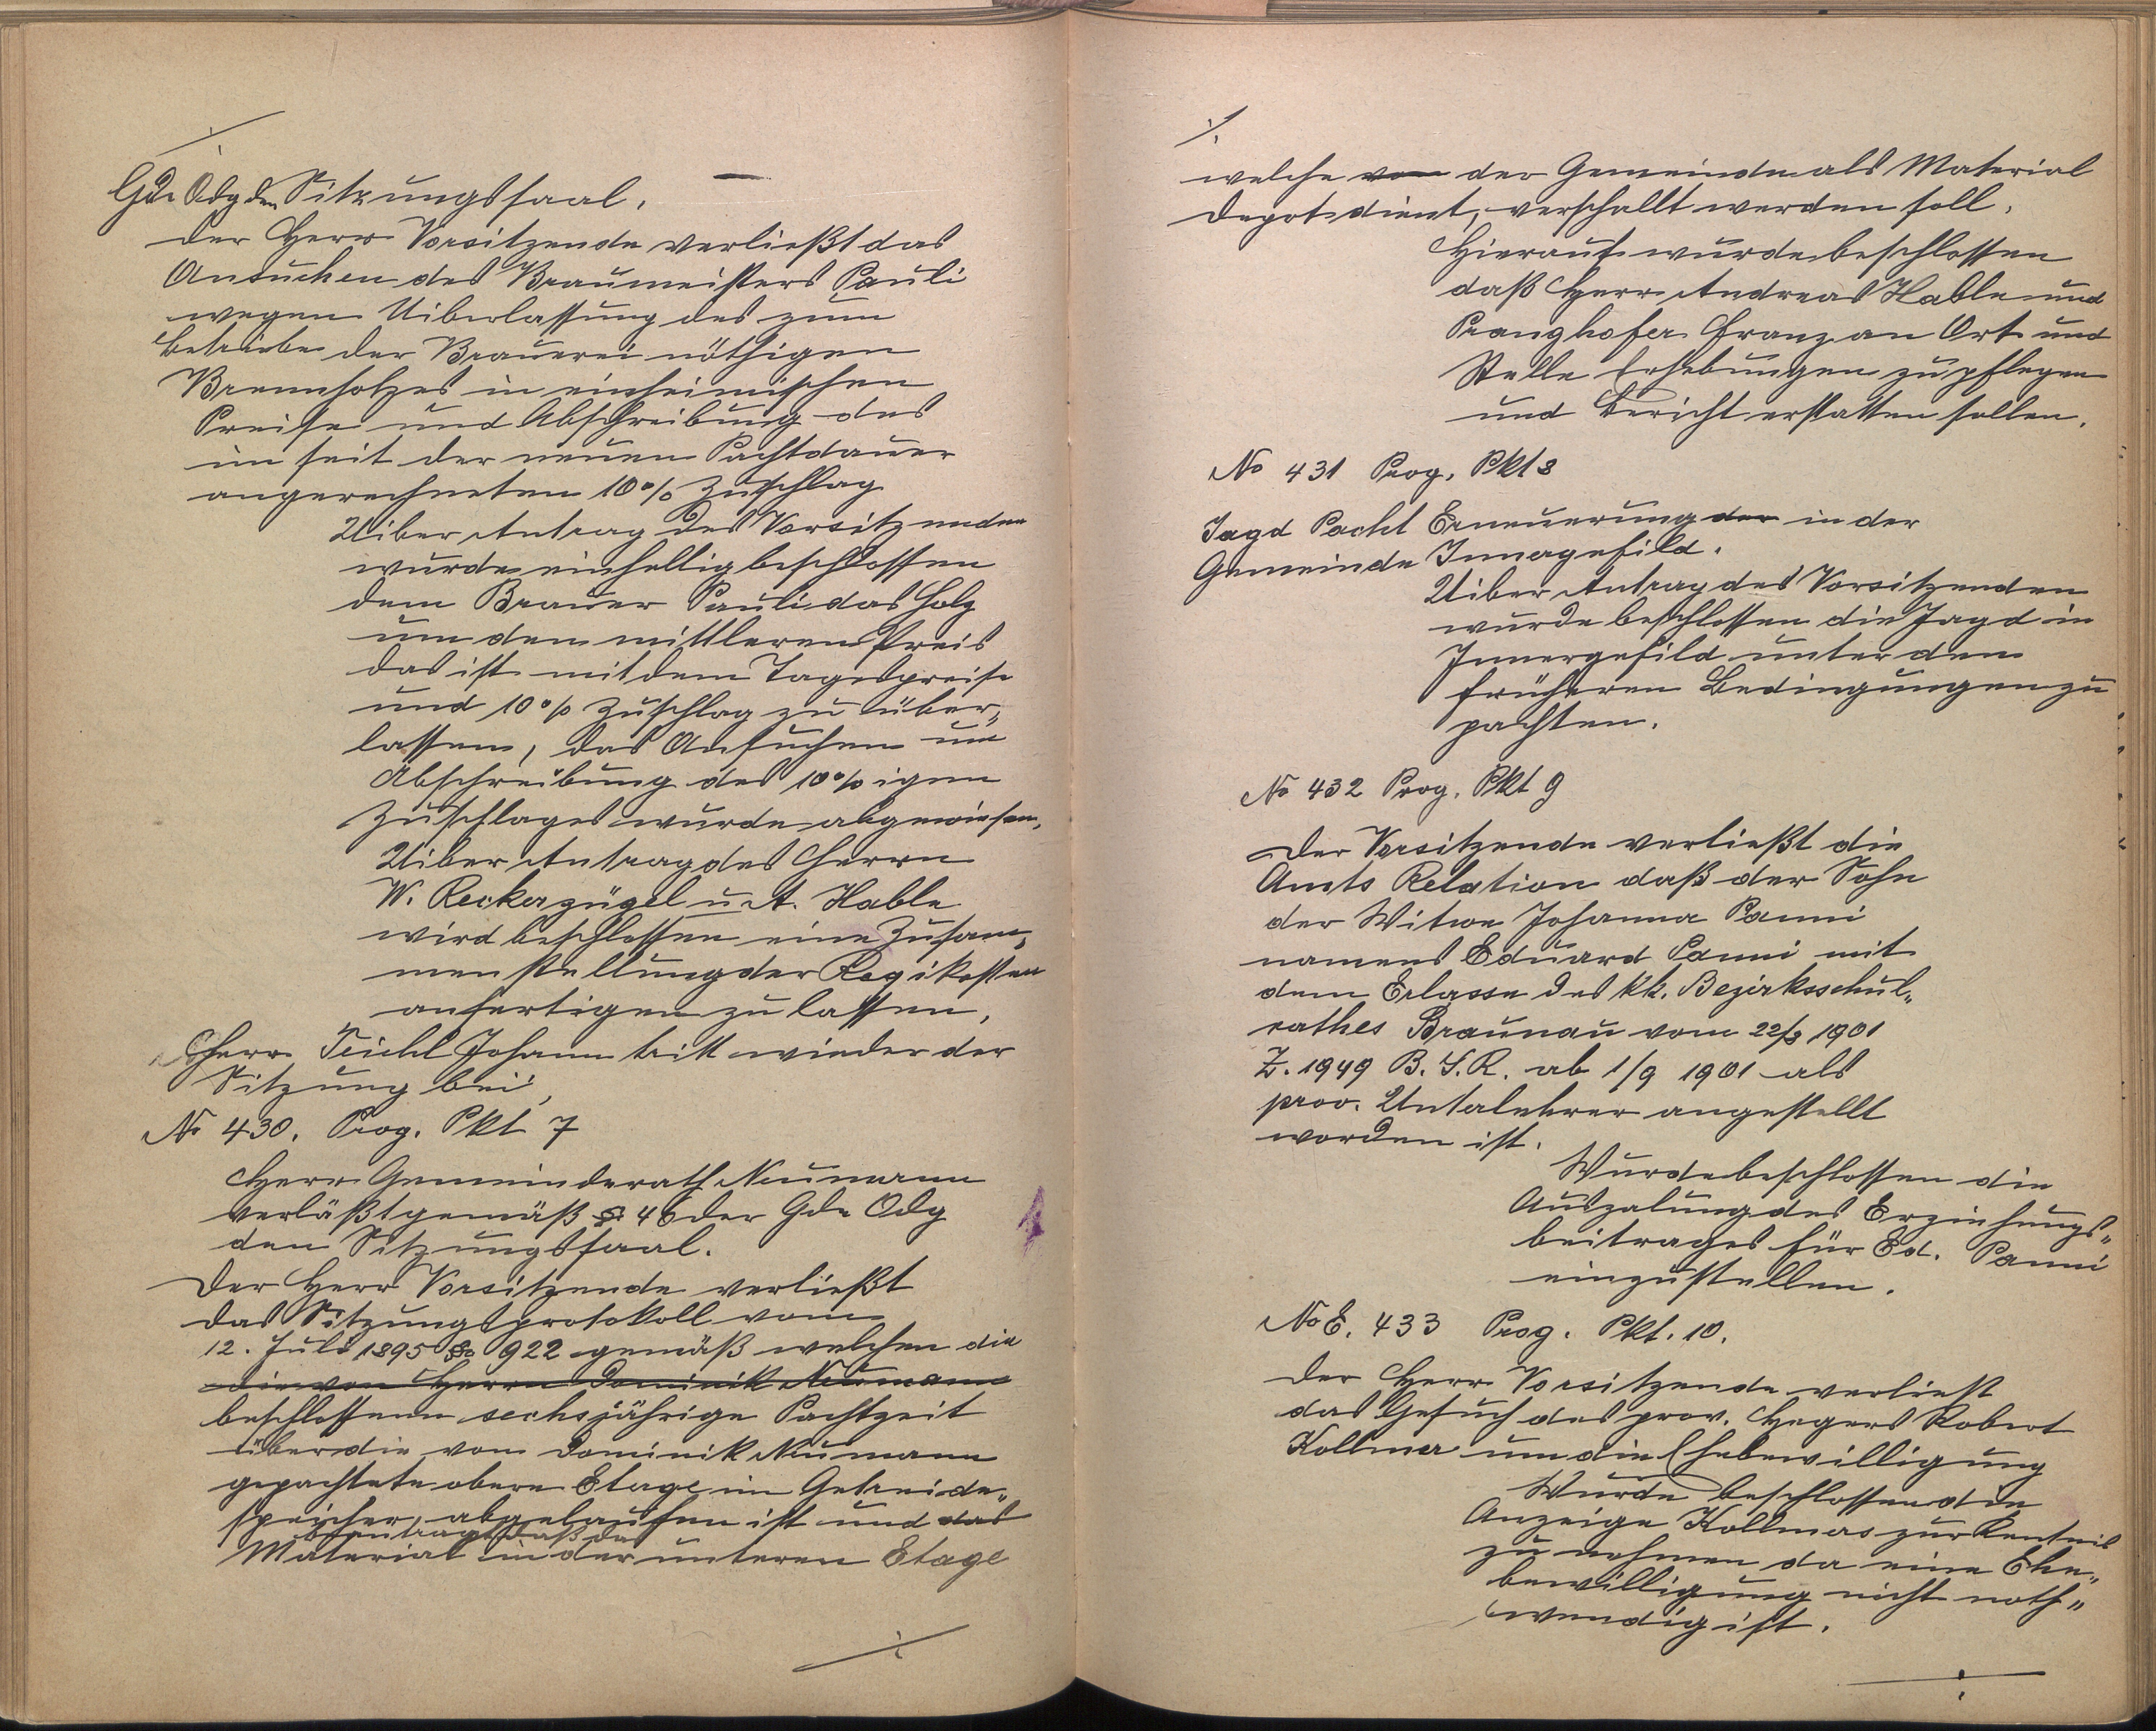 Gde Odg den Sitzungssaal.
der Herr Vorsitzende verließt das
Ansuchen des Braumeisters Pauli
wegen Uiberlassung des zum
Betriebe der Brauerei nöthigen
Brennholzes in einheimischen
Preise und Abschreibung des
im seit der neuen Pachtdauer
angerechneten 10% Zuschlag
Uiber Antrag des Vorsitzenden
wurde einhellig beschlossen
dem Brauer Pauli das Holz
um den mittleren Preis
das ist mit dem Tagespreise
und 10% Zuschlag zu über„
lassen, das Ansuchen um
Abschreibung des 10%igen
Zuschlages wurde abgewiesen.
Uiber Antrag des Herrn
W. Reckerzügel u. A. Hable
wird beschlossen eine Zusam„
menstellung der Regikosten
anfertigen zu lassen.
Herr Teichl Johann tritt wieder der
Sitzung bei,
No 430. Prog. Pkt 7
Herr Gemeinderath Neumann
verläßt gemäß § 46 der Gde Odg
den Sitzungssaal.
Der Herr Vorsitzende verließt
das Sitzungsprotokoll vom
12. Juli 1895 § 922 gemäß welchen die
die von Herrn Dominik Neumann
beschlossene sechsjährige Pachtzeit
über die vom Dominik Neumann
gepachtete obere Etage im Getreide„
speicher, abgelaufen ist und das
beantragt daß das
Material in der unteren Etage
./.
./.
welche von der Gemeinde als Material
depot dient, verschallt werden soll.
Hierauf wurde beschlossen
daß Herr Andreas Hable und
Pranghofer Franz an Ort und
Stelle Erhebungen zu pflegen
und Bericht erstatten sollen.
No 431 Prog. Pkt 8
Jagd Pacht Erneuerung der in der
Gemeinde Innergefild.
Uiber Antrag des Vorsitzenden
wurde beschlossen die Jagd in
Innergefild unter den
früheren Bedingungen zu
pachten.
No 432 Prog. Pkt 9
Der Vorsitzende verließt die
Amts Relation daß der Sohn
der Witwe Johanna Panni
namens Eduard Panni mit
dem Erlasse des kk. Bezirksschul„
rathes Braunau vom 22/8 1901
Z. 1949 B.S.R. ab 1/9 1901 als
prov. Unterlehrer angestellt
worden ist.
Wurde beschlossen die
Auszalung des Erziehungs„
beitrages für Ed. Panni
einzustellen.
No E. 433 Prog. Pkt. 10.
Der Herr Vorsitzende verliest
das Gesuch des prov. Hegers Robert
Kollmer um die Ehebewilligung
Wurde beschlossen die
Anzeige Kollmers zur Kentnis
zu nehmen da eine Ehe„
bewilligung nicht noth„
wendig ist.
./.